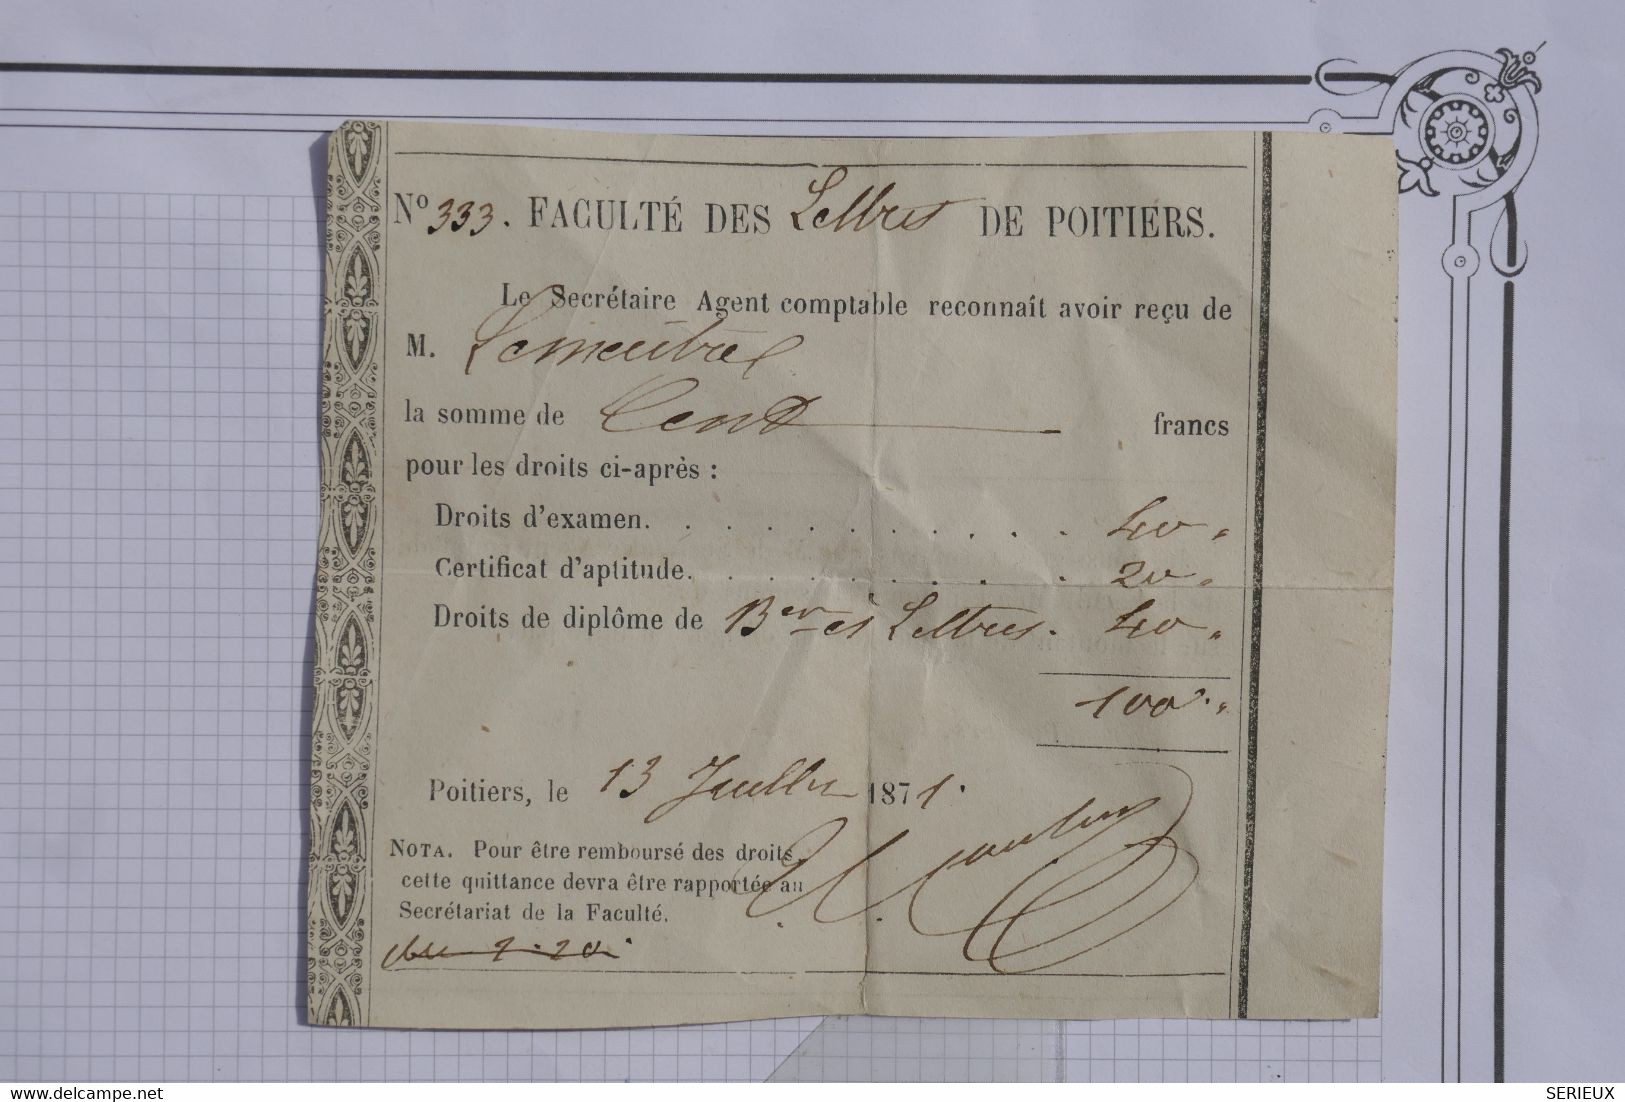 No 333. FACULTÉ DES Lettres DE POITIERS.
Le Secrétaire Agent comptable reconnaît avoir reçu de
M.
la somme de Cent francs
pour les droits ci-après :
Droits d'examen. . . . . . . . . . . 40 "
Certificat d'aptitude. . . . . . . . . 20 "
Droits de diplôme de Ber ès Lettres. 40 "
100 "
Poitiers, le 13 Juillet 1871.
NOTA. Pour être remboursé des droits,
cette quittance devra être rapportée au
Secrétariat de la Faculté.
delcampe.net
SERIEUX